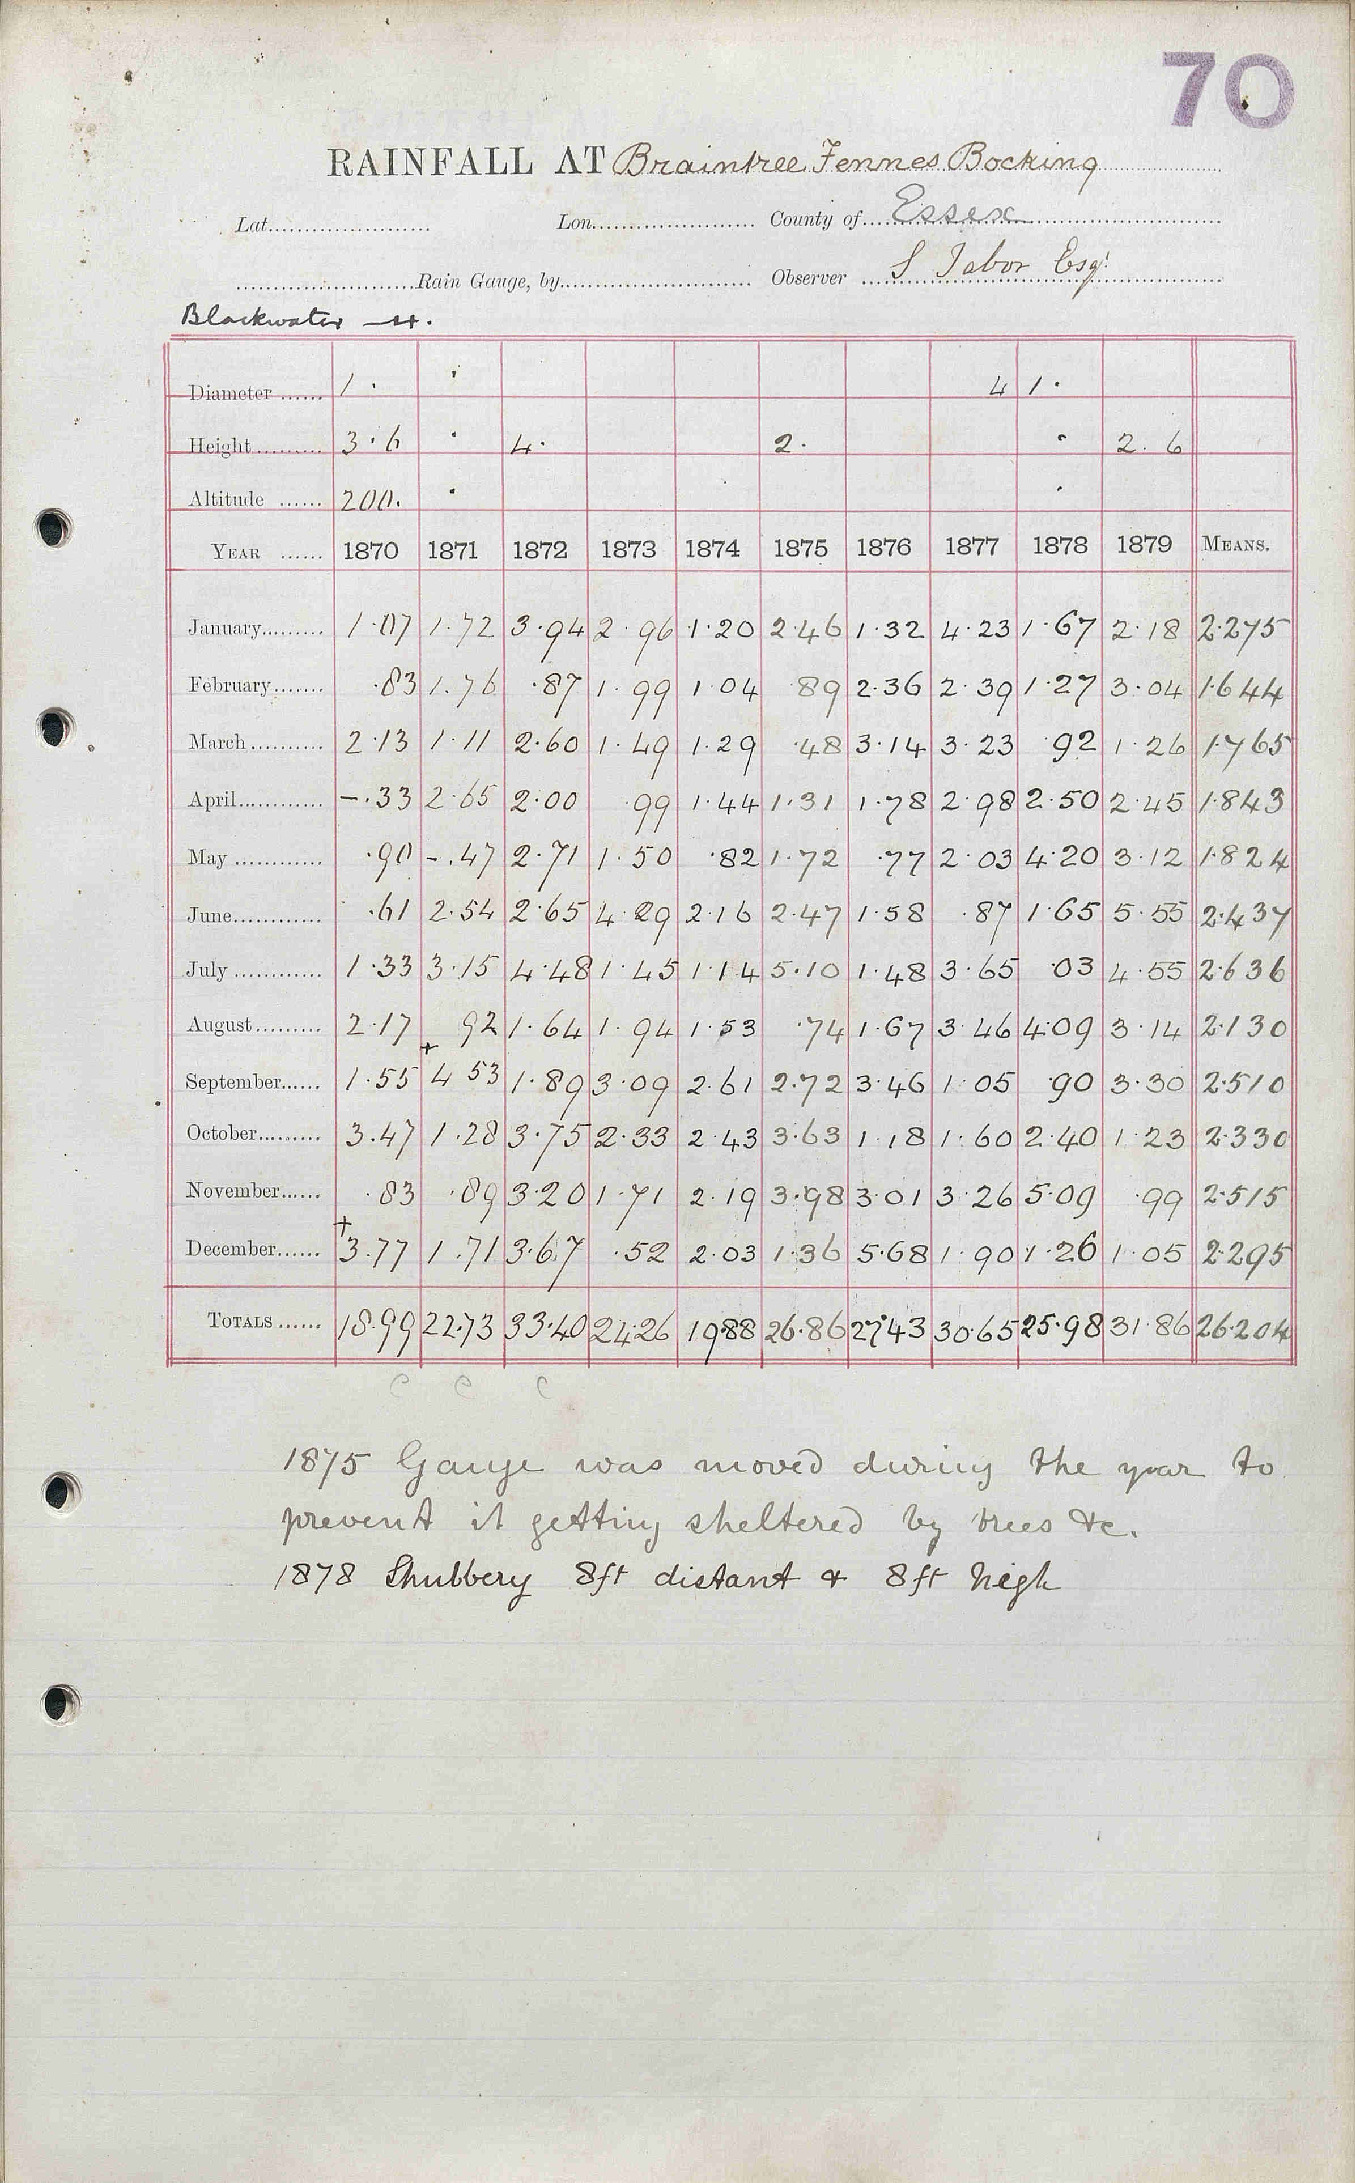 70
RAINFALL AT Braintree Fennes Bocking
Lat...................... Lon...................... County of Essex
........................Rain Gauge, by.......................... Observer S Tabor Esqr
Blackwater
Diameter ...... 1 · · 4 1 ·
Height.......... 3·6 · 4· 2· · 2.6
Altitude ...... 200. · ·
YEAR ...... 1870 1871 1872 1873 1874 1875 1876 1877 1878 1879 MEANS.
January......... 1·07 1·72 3·94 2·96 1·20 2·46 1·32 4·23 1·67 2·18 2·275
February....... ·83 1.76 ·87 1·99 1·04 ·89 2·36 2·39 1·27 3·04 1·644
March........... 2·13 1·11 2·60 1·49 1·29 ·48 3·14 3·23 ·92 1·26 1·765
April............ -·33 2·65 2·00 ·99 1·44 1·31 1·78 2·98 2·50 2·45 1·843
May ............ ·90 -·47 2·71 1·50 ·82 1·72 ·77 2·03 4·20 3·12 1·824
June............ ·61 2·54 2·65 4·29 2·16 2·47 1·58 ·87 1·65 5·55 2·437
July ............ 1·33 3·15 4·48 1·45 1·14 5·10 1·48 3·65 ·03 4·55 2·636
August......... 2·17 92 1·64 1·94 1·53 ·74 1·67 3·46 4·09 3·14 2·130
September...... 1·55 + 4 53 1·89 3·09 2·61 2·72 3·46 1·05 ·90 3·30 2·510
October......... 3·47 1·28 3·75 2·33 2·43 3·63 1·18 1·60 2·40 1·23 2·330
November...... ·83 ·89 3·20 1·71 2·19 3·98 3·01 3·26 5·09 ·99 2·515
December...... + 3·77 1·71 3·67 ·52 2·03 1·36 5·68 1·90 1·26 1·05 2·295
TOTALS ...... 18·99 22·73 33·40 24·26 19·88 26·86 27·43 30·65 25·98 31·86 26·204
c c c
1875 Gauge was moved during the year to
prevent it getting sheltered by trees &c.
1878 Shubbery 8ft distant & 8ft high